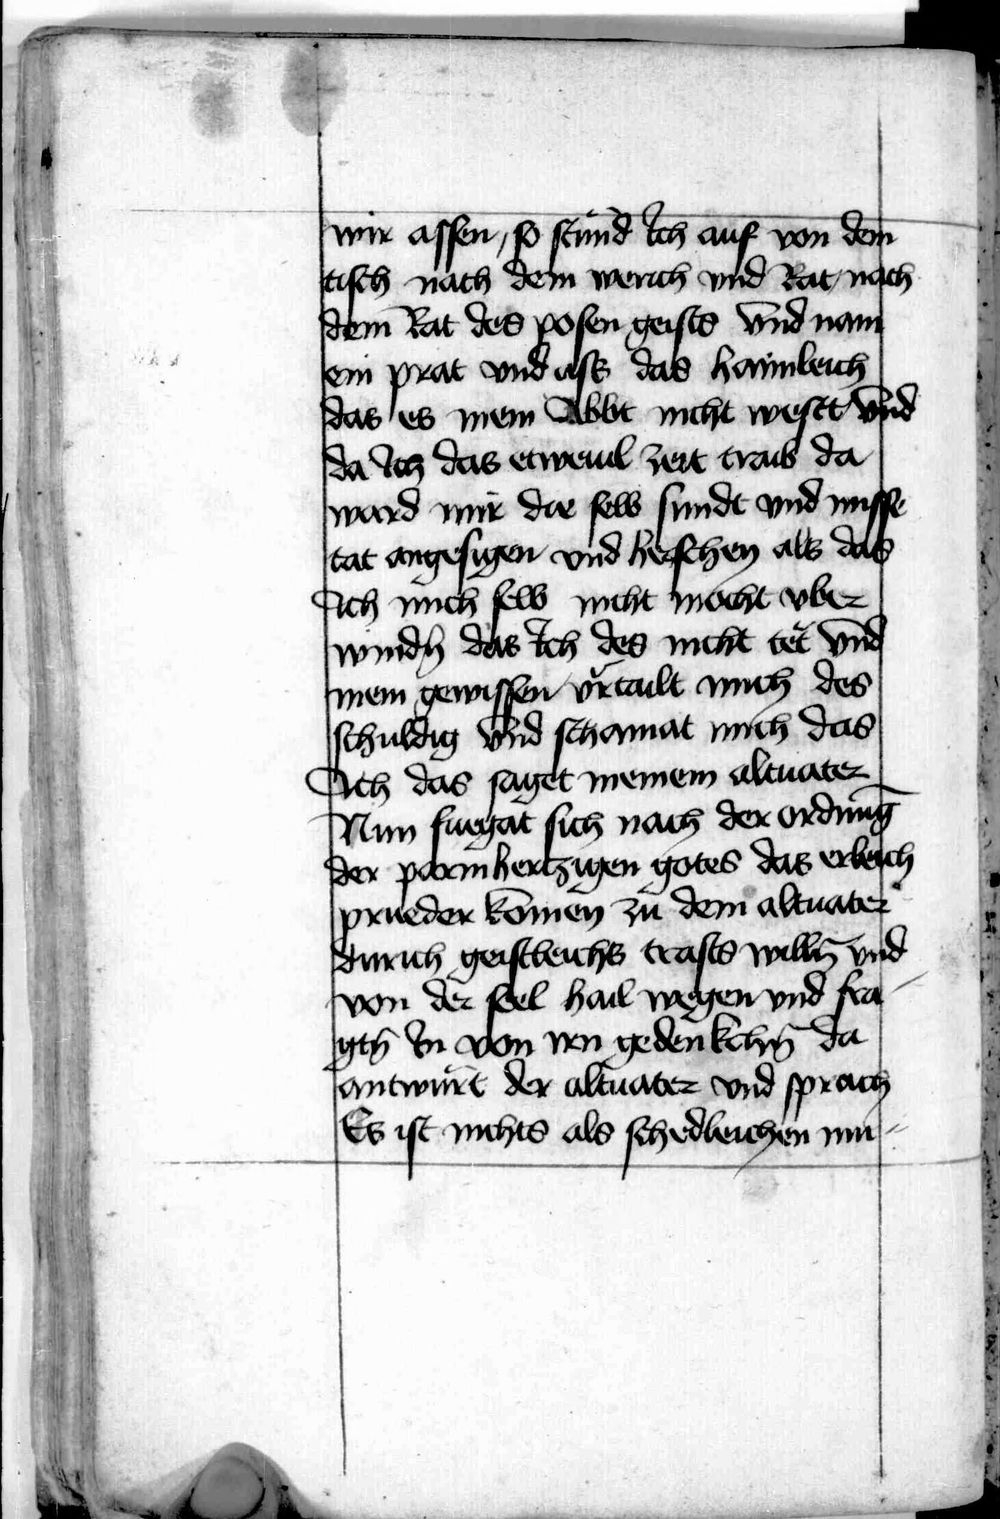 wir assen, so stund Ich auf von dem
tisch nach dem werch vnd Rat nach
dem Rat des posen geists vnd nam
ein prat vnd ass das haimleich
das es mein Abbt nicht westt vnd
da Ich das etweuil zeit traib da
ward mir die selb sundt vnd misse
tat angesigen vnd herschen als das
Ich mich selb nicht mocht vber
windn̄ das Ich des nicht tet vnd
mein gewissen vrtailt mich des
schuldig vnd schamat mich das
Ich das saget meinem altuater
Nun fuegat sich nach der ordnūg
der parmhertzigen gotes das erleich
prueder komen zu dem altuater
durich geistleichs trasts willn̄ vnd
von der seel hail wegen vnd fra-
gtn̄ In von irn gedenkchn̄ da
antwurt der altuater vnd sprach
Es ist nichts als schedleichen mu-